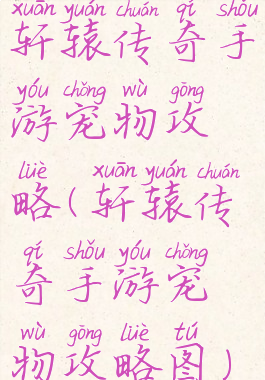 xuān yuán chuán qí shǒu
轩辕传奇手
yóu chǒng wù gōng
游宠物攻
lüè xuān yuán chuán
略(轩辕传
qí shǒu yóu chǒng
奇手游宠
wù gōng lüè tú
物攻略图)